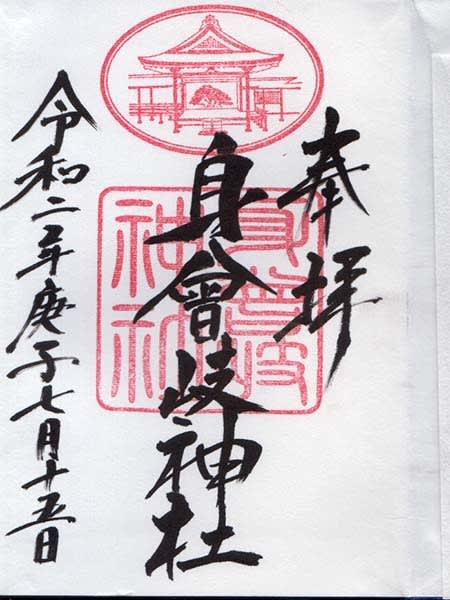 奉拝
身曾岐神社
令和二年庚子七月十五日
身曾岐
神社